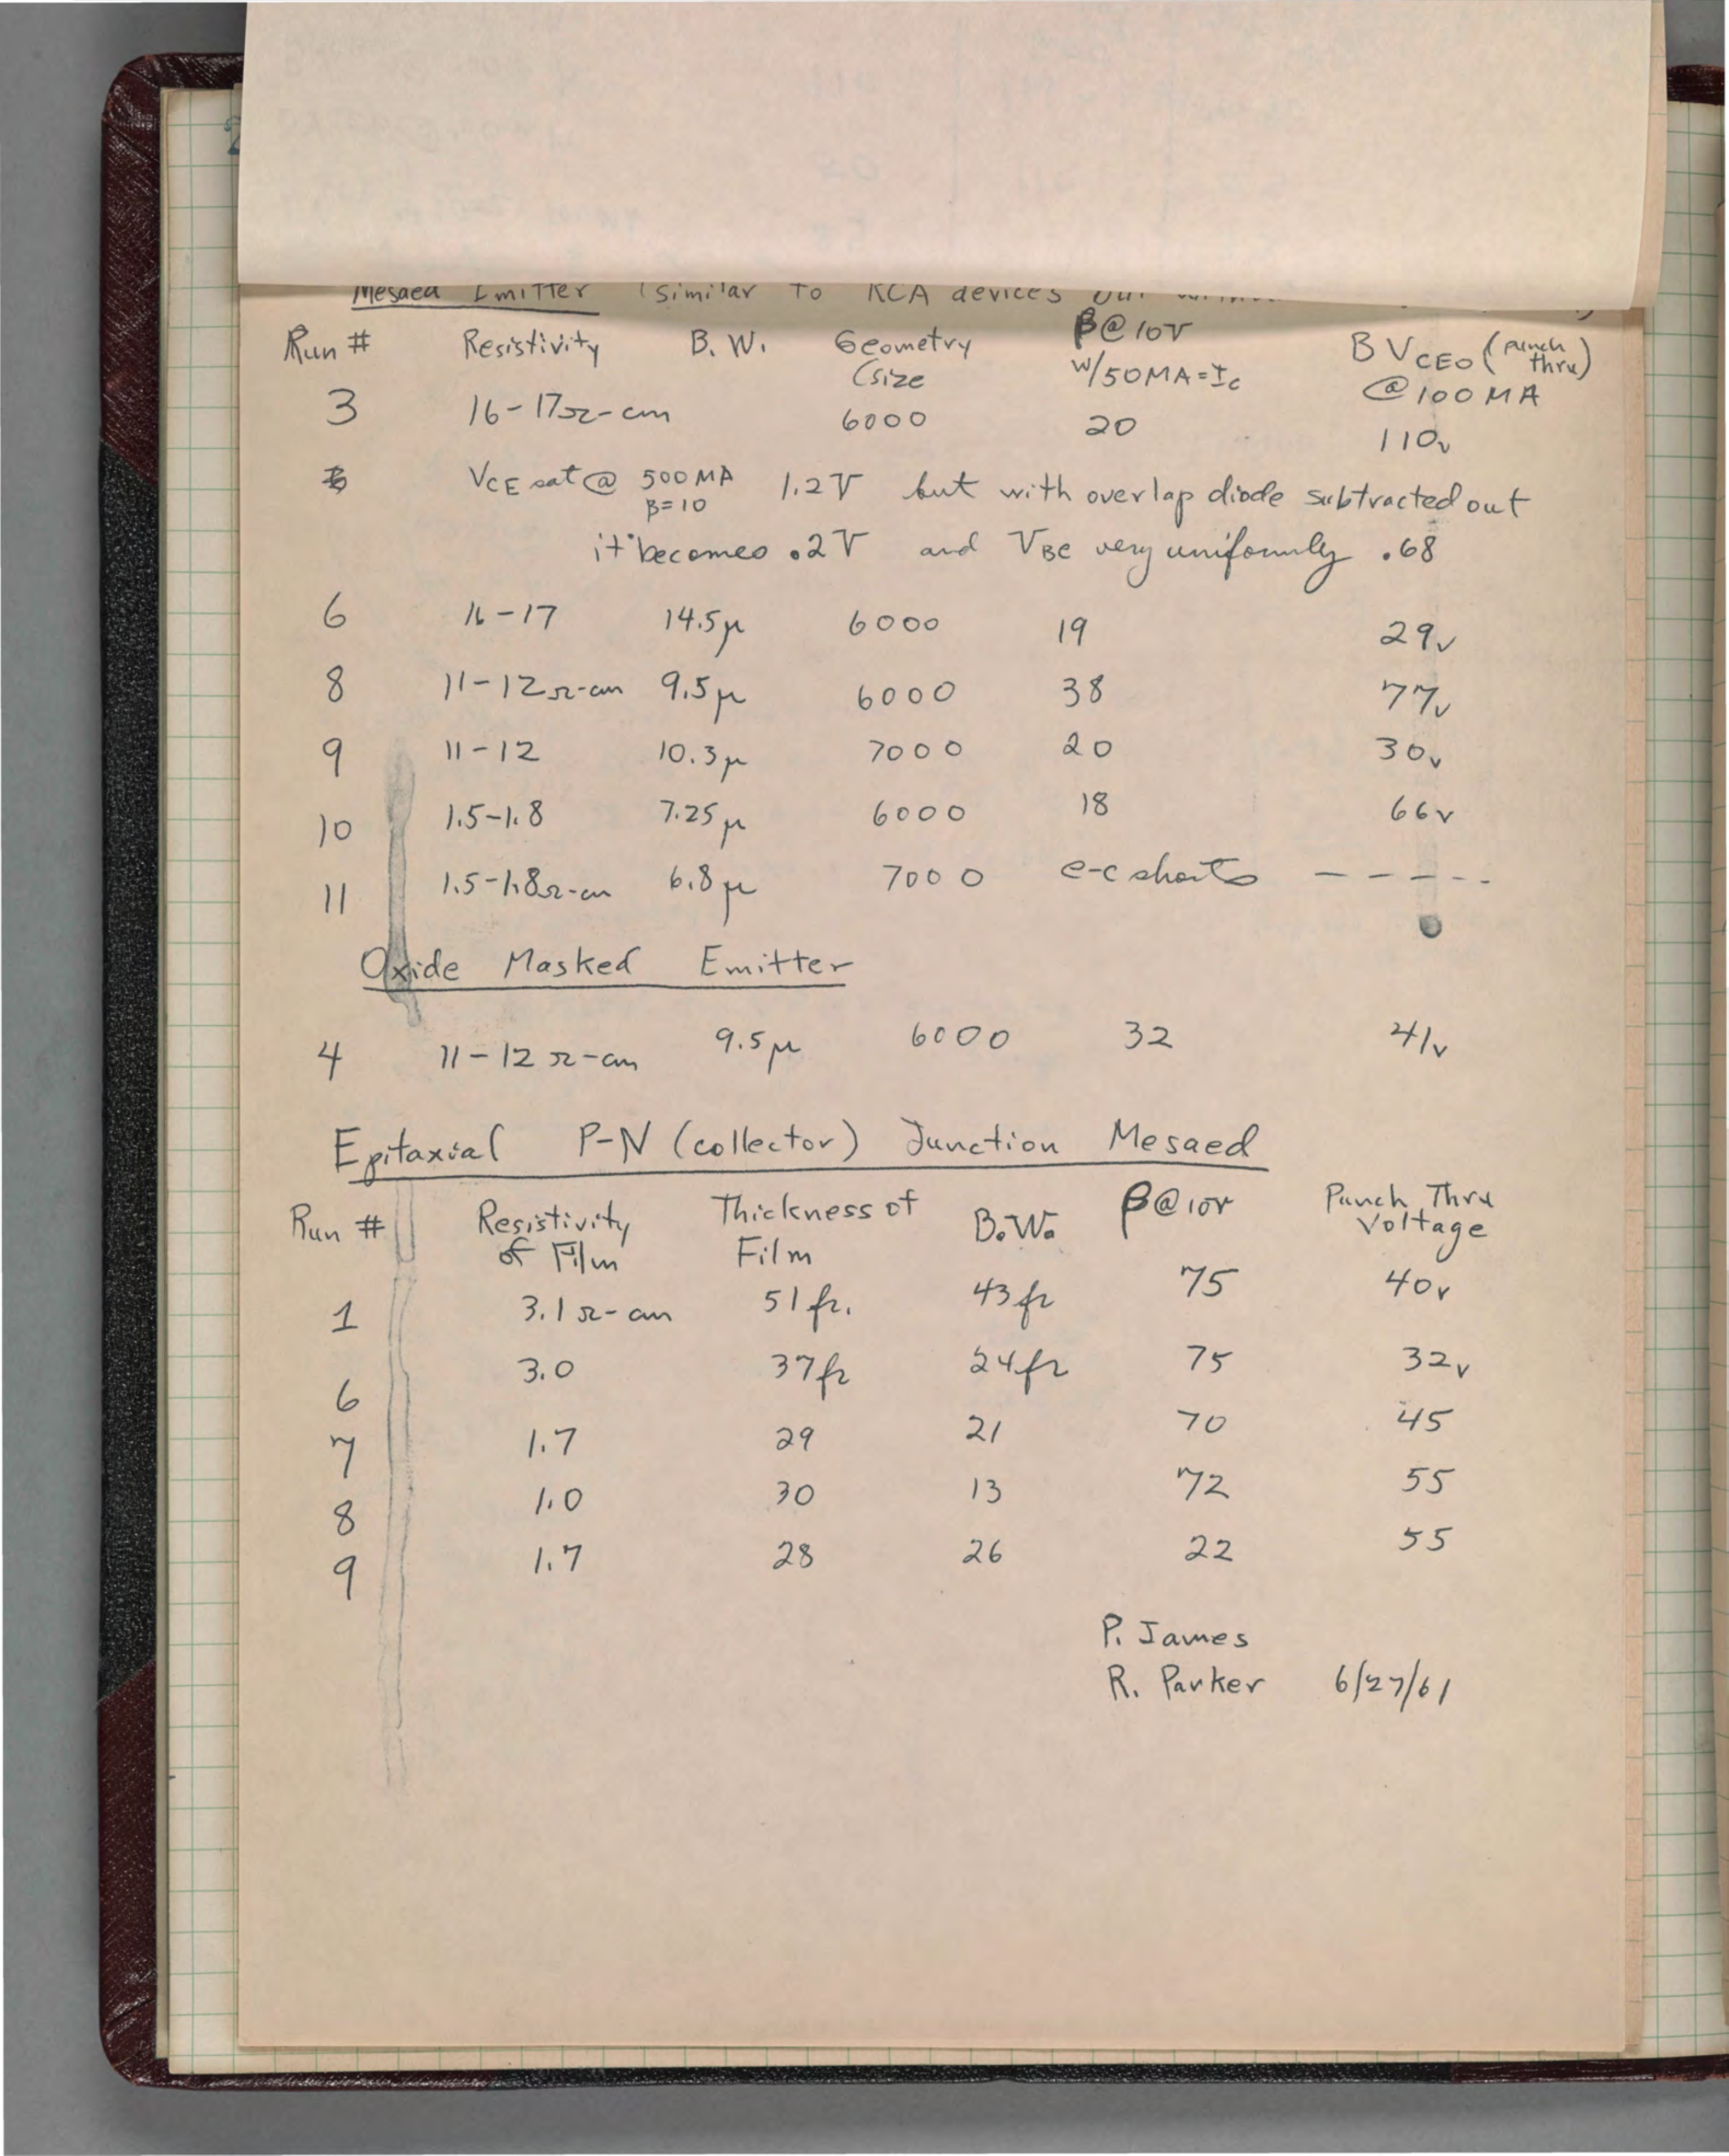 Mesaed Emitter (similar to RCA devices but
Run # Resistivity B.W. Geometry (size β@10V w/50MA=Ic BVCEO (punch thru) @100MA
3 16-17Ω-cm 6000 20 110v
VCE sat @ 500MA β=10 1.2V but with overlap diode subtracted out
it becomes .2V and VBE very uniformly .68
6 16-17 14.5μ 6000 19 29v
8 11-12Ω-cm 9.5μ 6000 38 77v
9 11-12 10.3μ 7000 20 30v
10 1.5-1.8 7.25μ 6000 18 66v
11 1.5-1.8Ω-cm 6.8μ 7000 e-c shorts -----
Oxide Masked Emitter
4 11-12Ω-cm 9.5μ 6000 32 41v
Epitaxial P-N (collector) Junction Mesaed
Run # Resistivity of Film Thickness of Film B.W. β@10V Punch Thru Voltage
1 3.1Ω-cm 51fr. 43fr 75 40v
6 3.0 37fr 24fr 75 32v
7 1.7 29 21 70 45
8 1.0 30 13 72 55
9 1.7 28 26 22 55
P. James
R. Parker 6/27/61